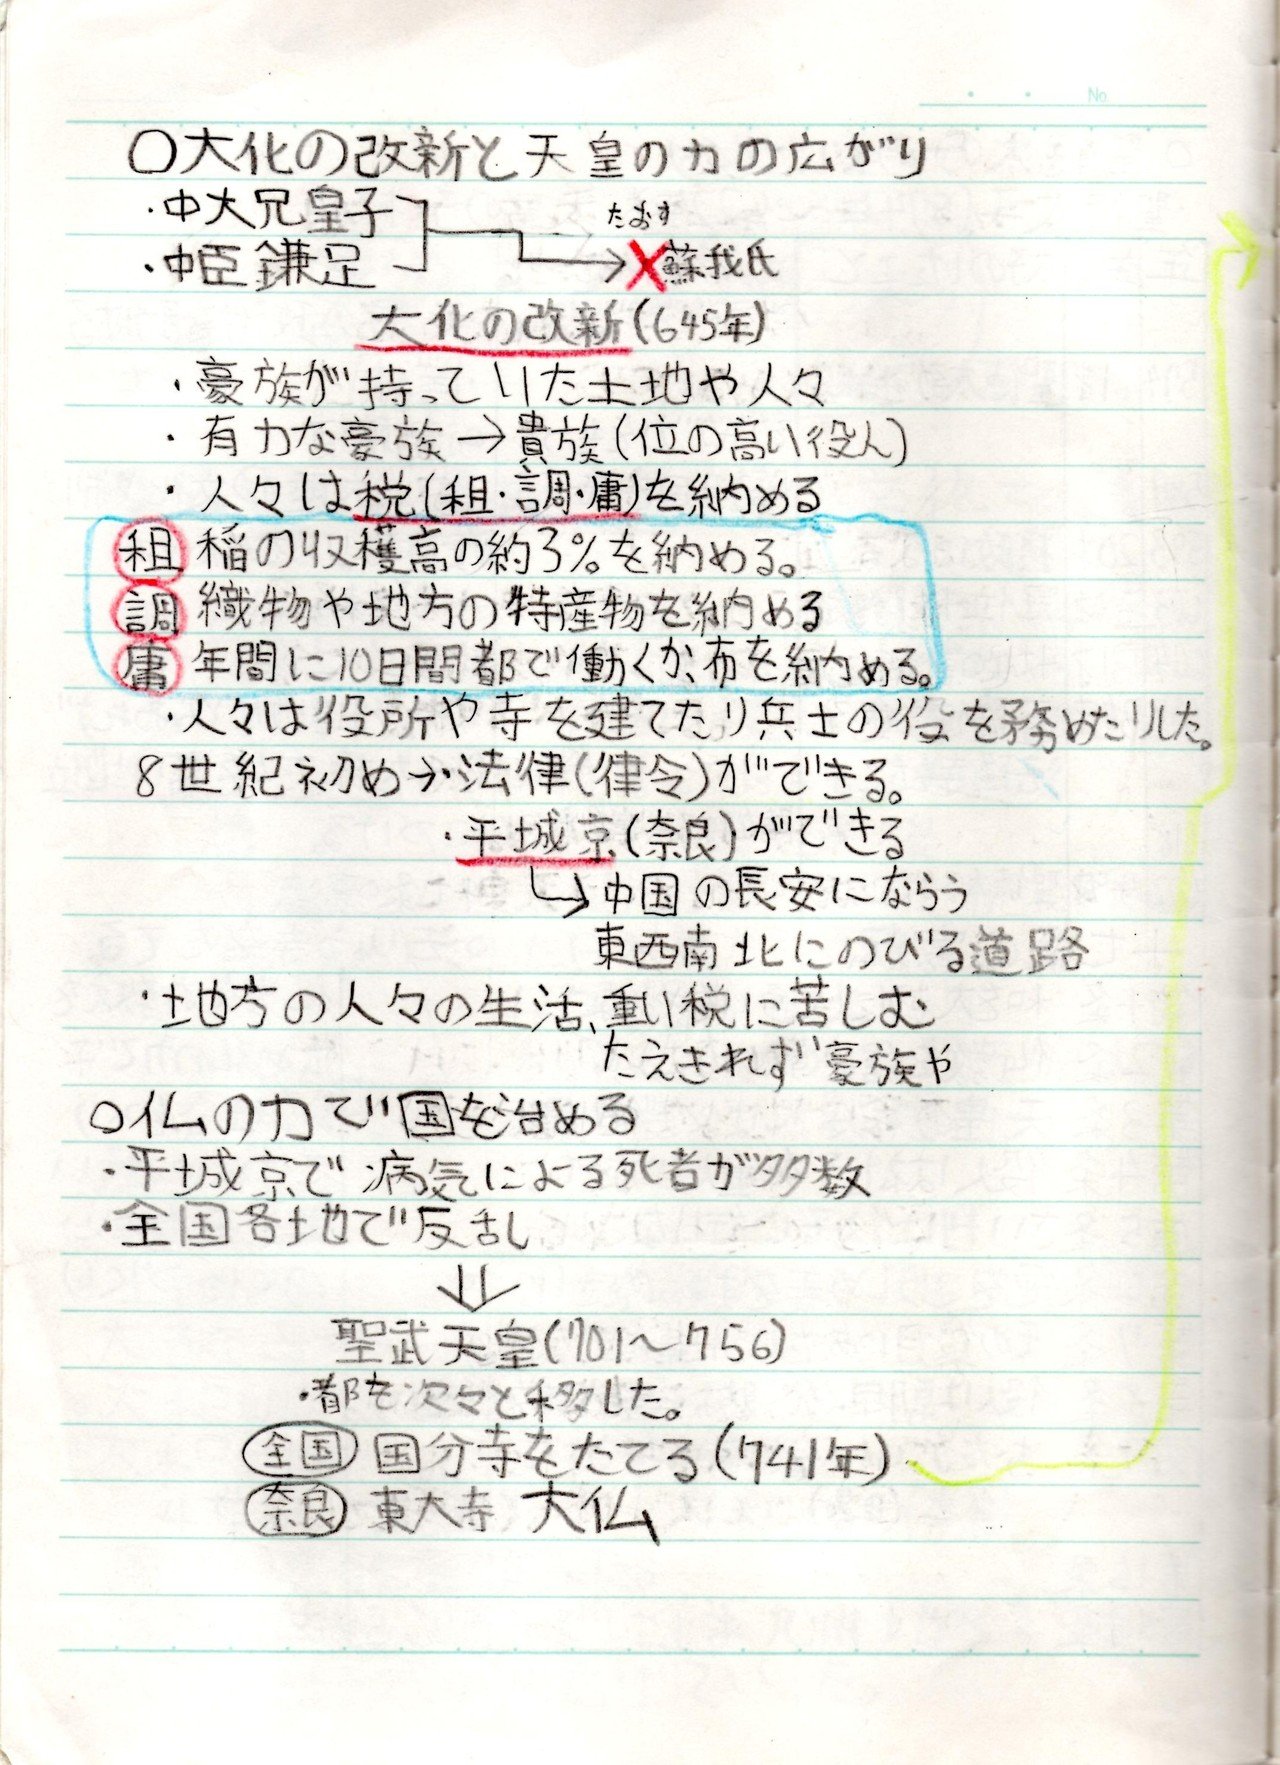 No
○大化の改新と天皇の力の広がり
・中大兄皇子
たおす
・中臣鎌足 → ×蘇我氏
大化の改新(645年)
・豪族が持っていた土地や人々
・有力な豪族→貴族(位の高い役人)
・人々は税(租・調・庸)を納める
租 稲の収穫高の約3%を納める。
調 織物や地方の特産物を納める
庸 年間に10日間都で働くか、布を納める。
・人々は役所や寺を建てたり兵士の役を務めたりした。
8世紀初め→・法律(律令)ができる。
・平城京(奈良)ができる
↳中国の長安にならう
東西南北にのびる道路
・地方の人々の生活、重い税に苦しむ
たえきれず豪族や
○仏の力で国を治める
・平城京で病気による死者が多数
・全国各地で反乱
⇓
聖武天皇(701~756)
・都を次々と移した。
全国 国分寺をたてる(741年)
奈良 東大寺 大仏